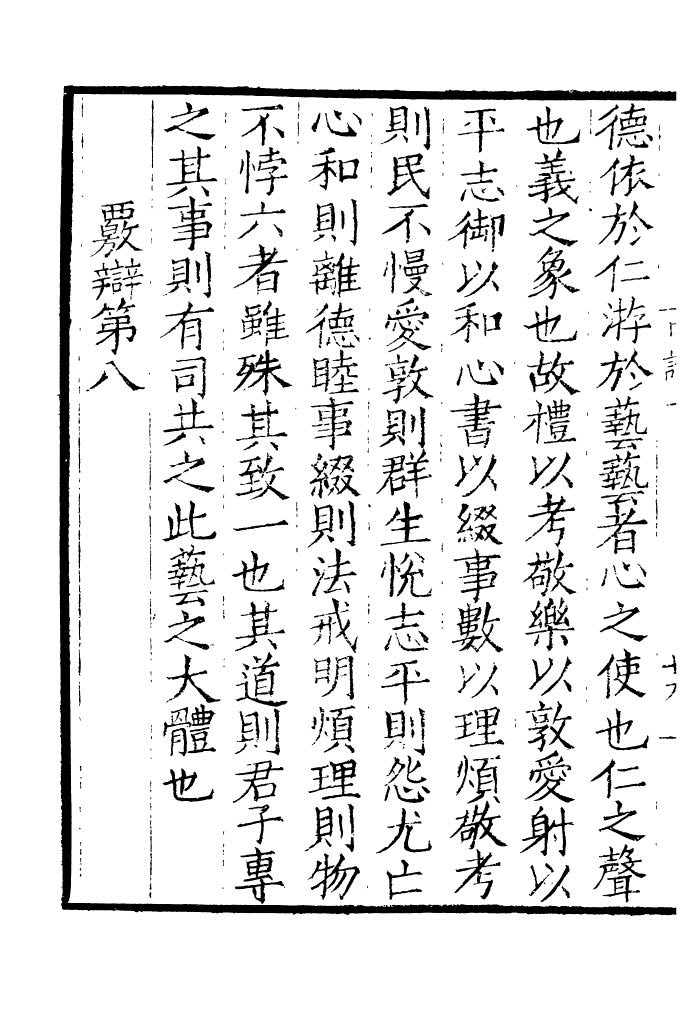 德依於仁游於藝藝者心之使也仁之聲
也義之象也故禮以考敬樂以敦愛射以
平志御以和心書以綴事數以理煩敬考
則民不慢愛敦則群生悅志平則怨尤亡
心和則離德睦事綴則法戒明煩理則物
不悖六者雖殊其致一也其道則君子專
之其事則有司共之此藝之大體也
覈辯第八